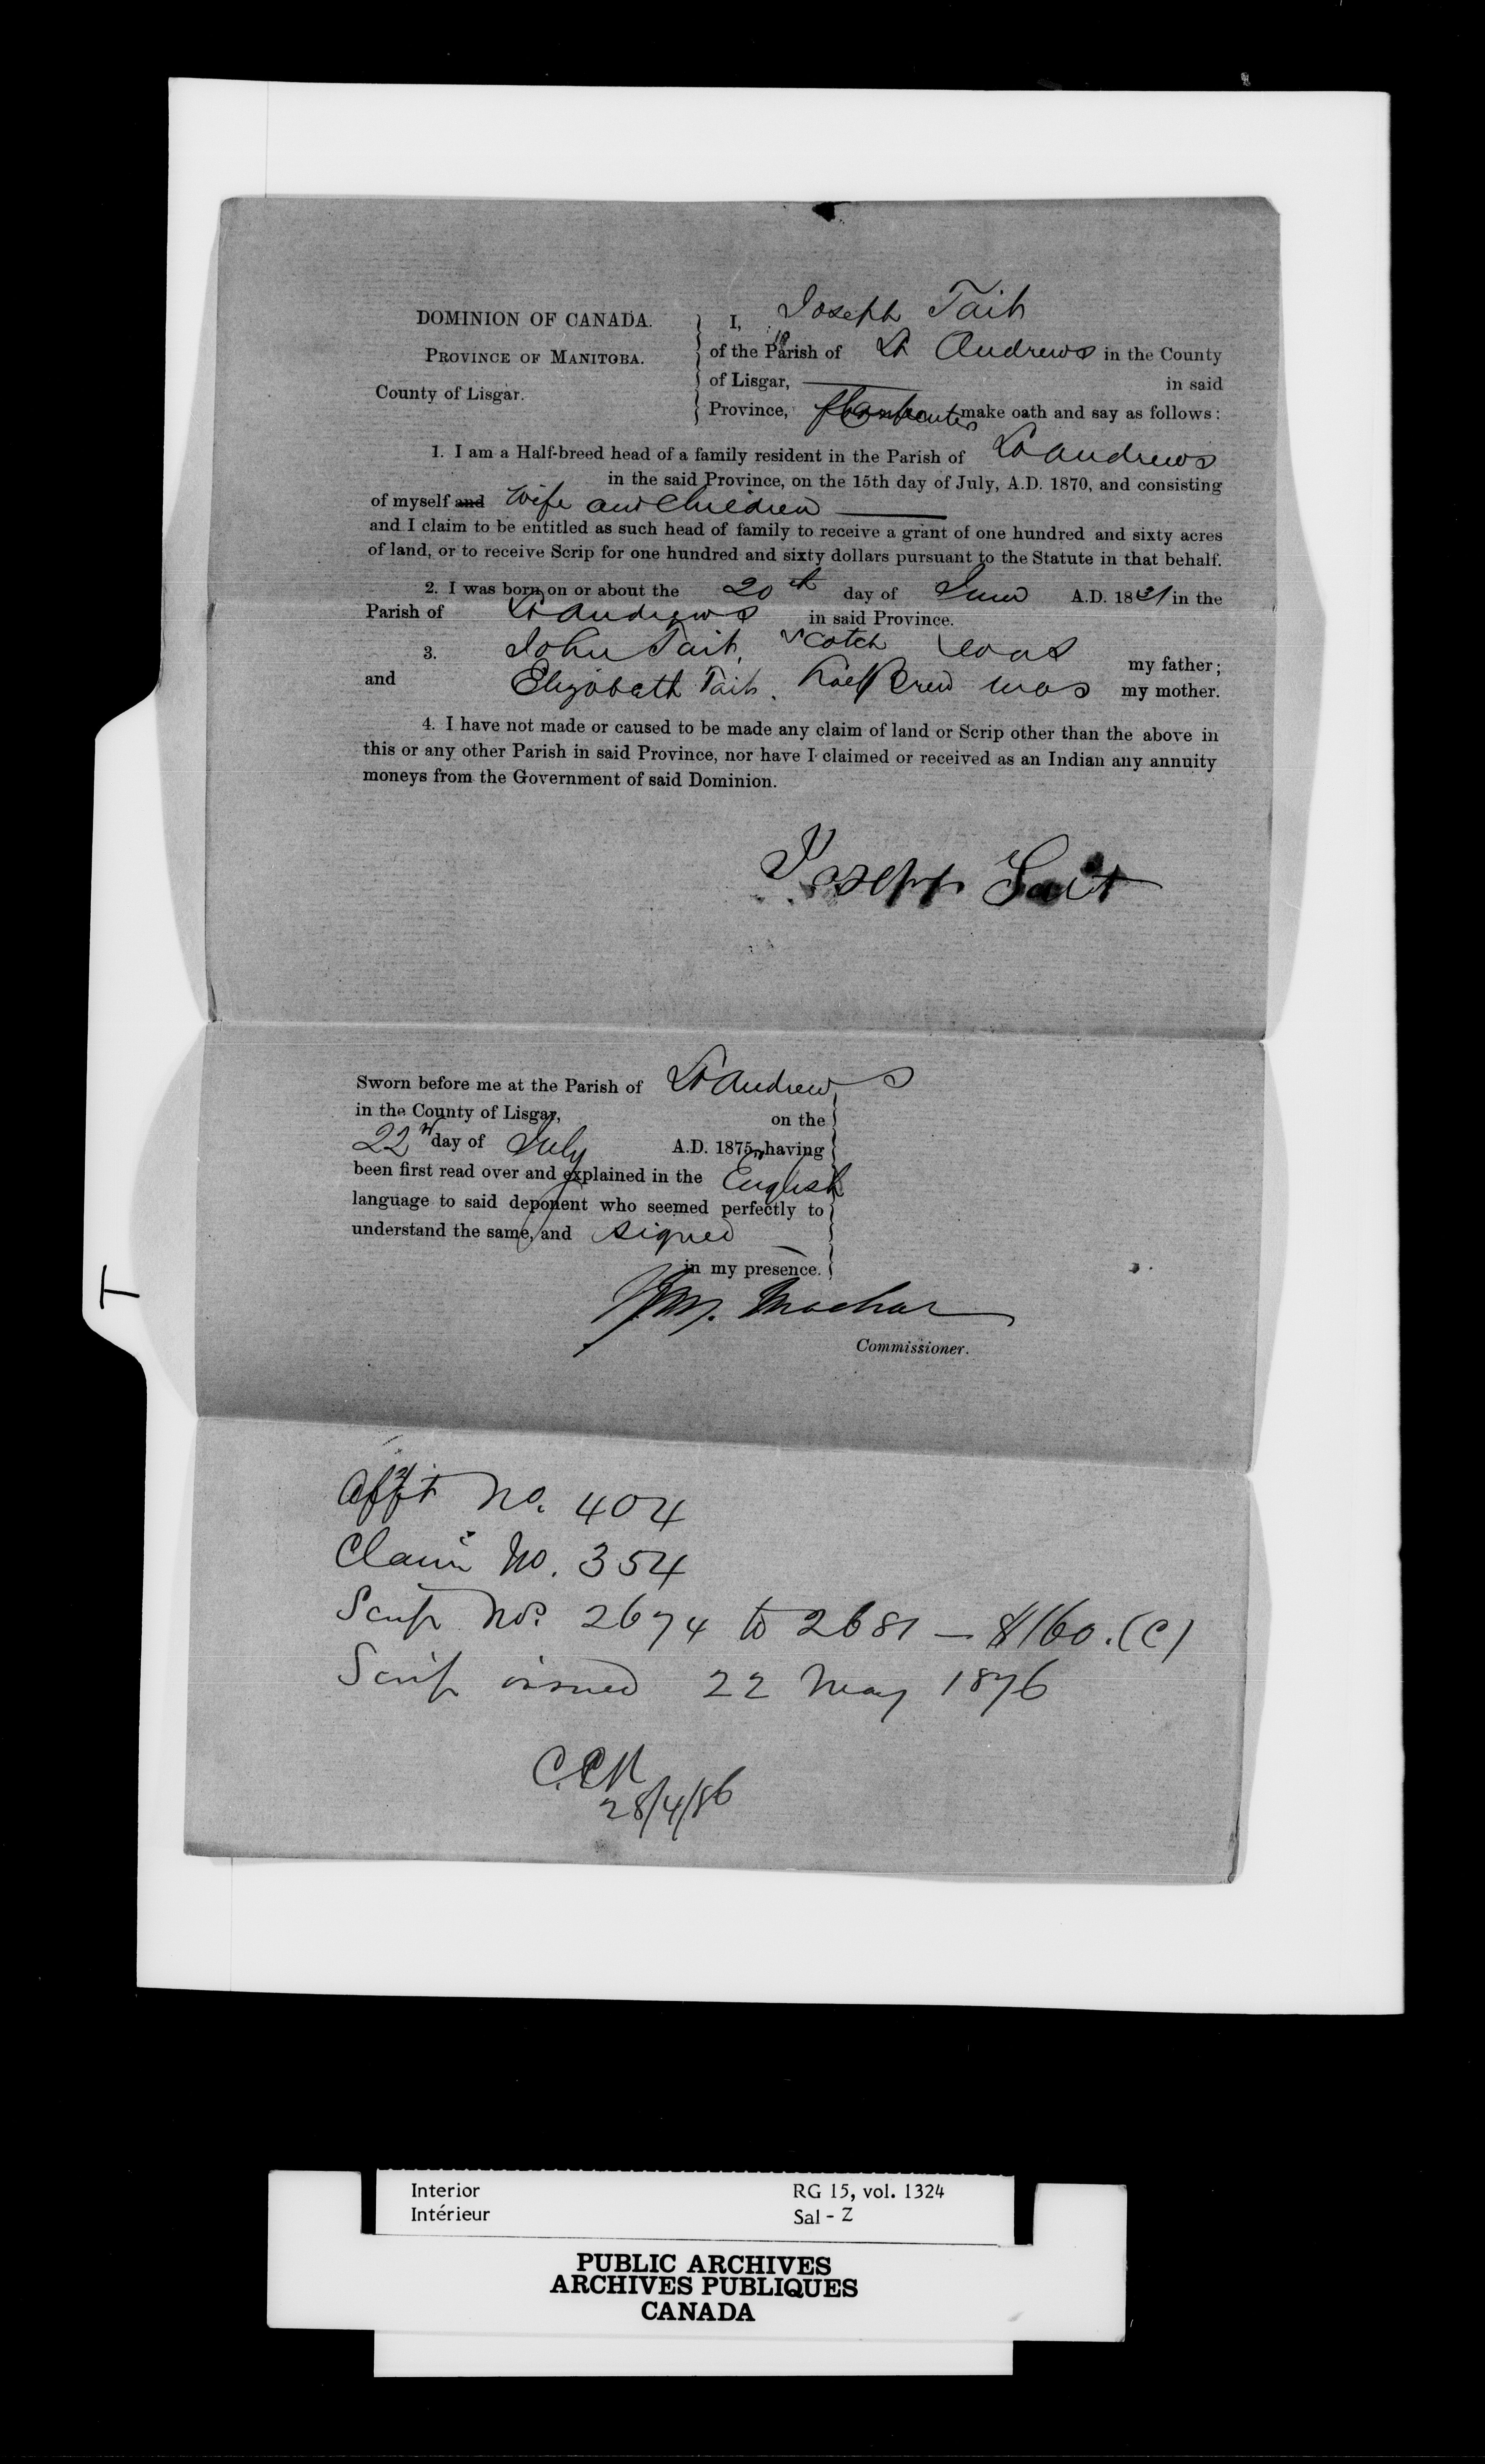 DOMINION OF CANADA.
PROVINCE OF MANITOBA.
County of Lisgar.
I, Joseph Tait
of the Parish of St Andrews in the County
of Lisgar, in said
Province, Carpenter make oath and say as follows:
1. I am a Half-breed head of a family resident in the Parish of St Andrews
in the said Province, on the 15th day of July, A.D. 1870, and consisting
of myself and Wife and Children
and I claim to be entitled as such head of family to receive a grant of one hundred and sixty acres
of land, or to receive Scrip for one hundred and sixty dollars pursuant to the Statute in that behalf.
2. I was born on or about the 20th day of June A.D. 1831 in the
Parish of St Andrews in said Province.
3. John Tait, Scotch was my father;
and Elizabeth Tait. half Breed was my mother.
4. I have not made or caused to be made any claim of land or Scrip other than the above in
this or any other Parish in said Province, nor have I claimed or received as an Indian any annuity
moneys from the Government of said Dominion.
Joseph Tait
Sworn before me at the Parish of St Andrews
in the County of Lisgar, on the
22nd day of July A.D. 1875, having
been first read over and explained in the English
language to said deponent who seemed perfectly to
understand the same, and signed
in my presence.
Machar
Commissioner.
T
Afft No. 404
Claim No. 354
Scrip Nos 2674 to 2681 — $160. (C)
Scrip issued 22 May 1876
28/4/86
Interior RG 15, vol. 1324
Intérieur Sal - Z
PUBLIC ARCHIVES
ARCHIVES PUBLIQUES
CANADA